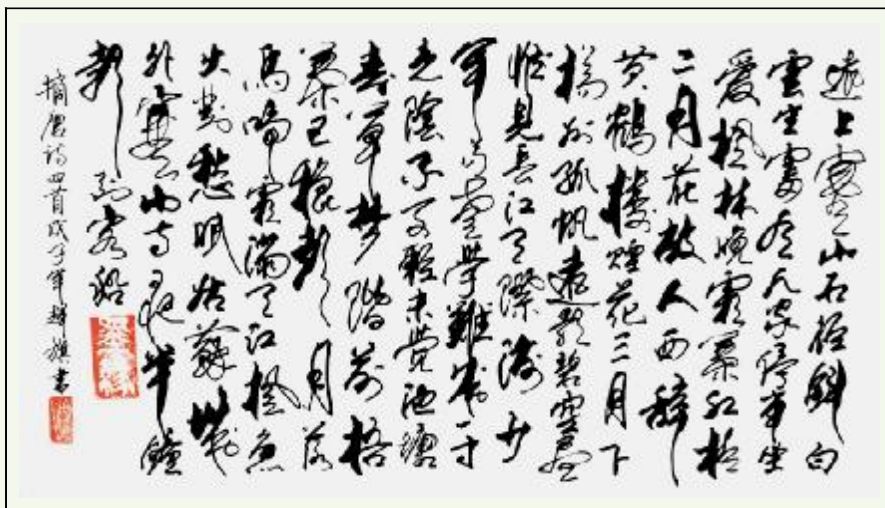 遠上寒山石徑斜白
雲生處有人家停車坐
愛楓林晚霜葉紅於
二月花故人西辭
黃鶴樓煙花三月下
揚州孤帆遠影碧空盡
惟見長江天際流少
年易老學難成一寸
光陰不可輕未覺池塘
春草夢階前梧
葉已秋聲月落
烏啼霜滿天江楓漁
火對愁眠姑蘇城
外寒山寺夜半鐘
聲到客船
摘唐詩四首戊子年趙旗書